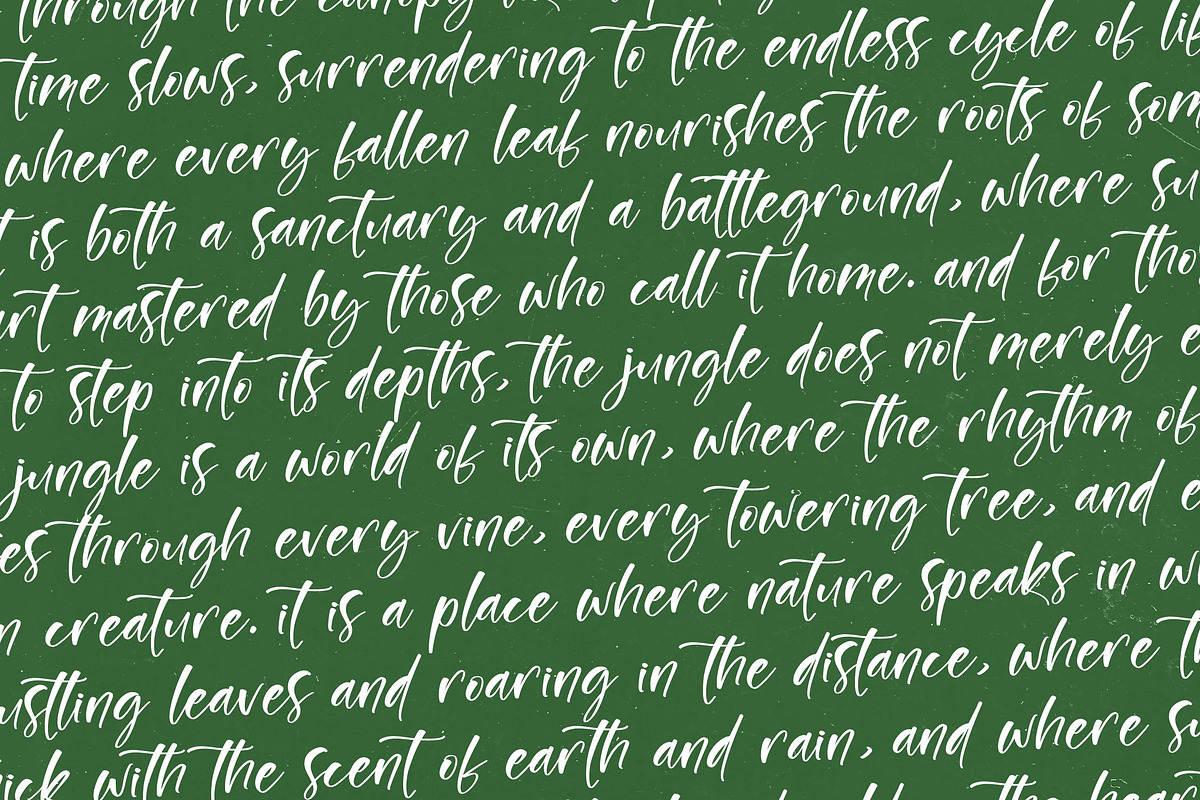 through the canopy
time slows, surrendering to the endless cycle of li
where every fallen leaf nourishes the roots of som
t is both a sanctuary and a battleground, where su
rt mastered by those who call it home. and for tho
to step into its depths, the jungle does not merely e
jungle is a world of its own, where the rhythm of
es through every vine, every towering tree, and e
n creature. it is a place where nature speaks in w
ustling leaves and roaring in the distance, where t
ick with the scent of earth and rain, and where s
the hear